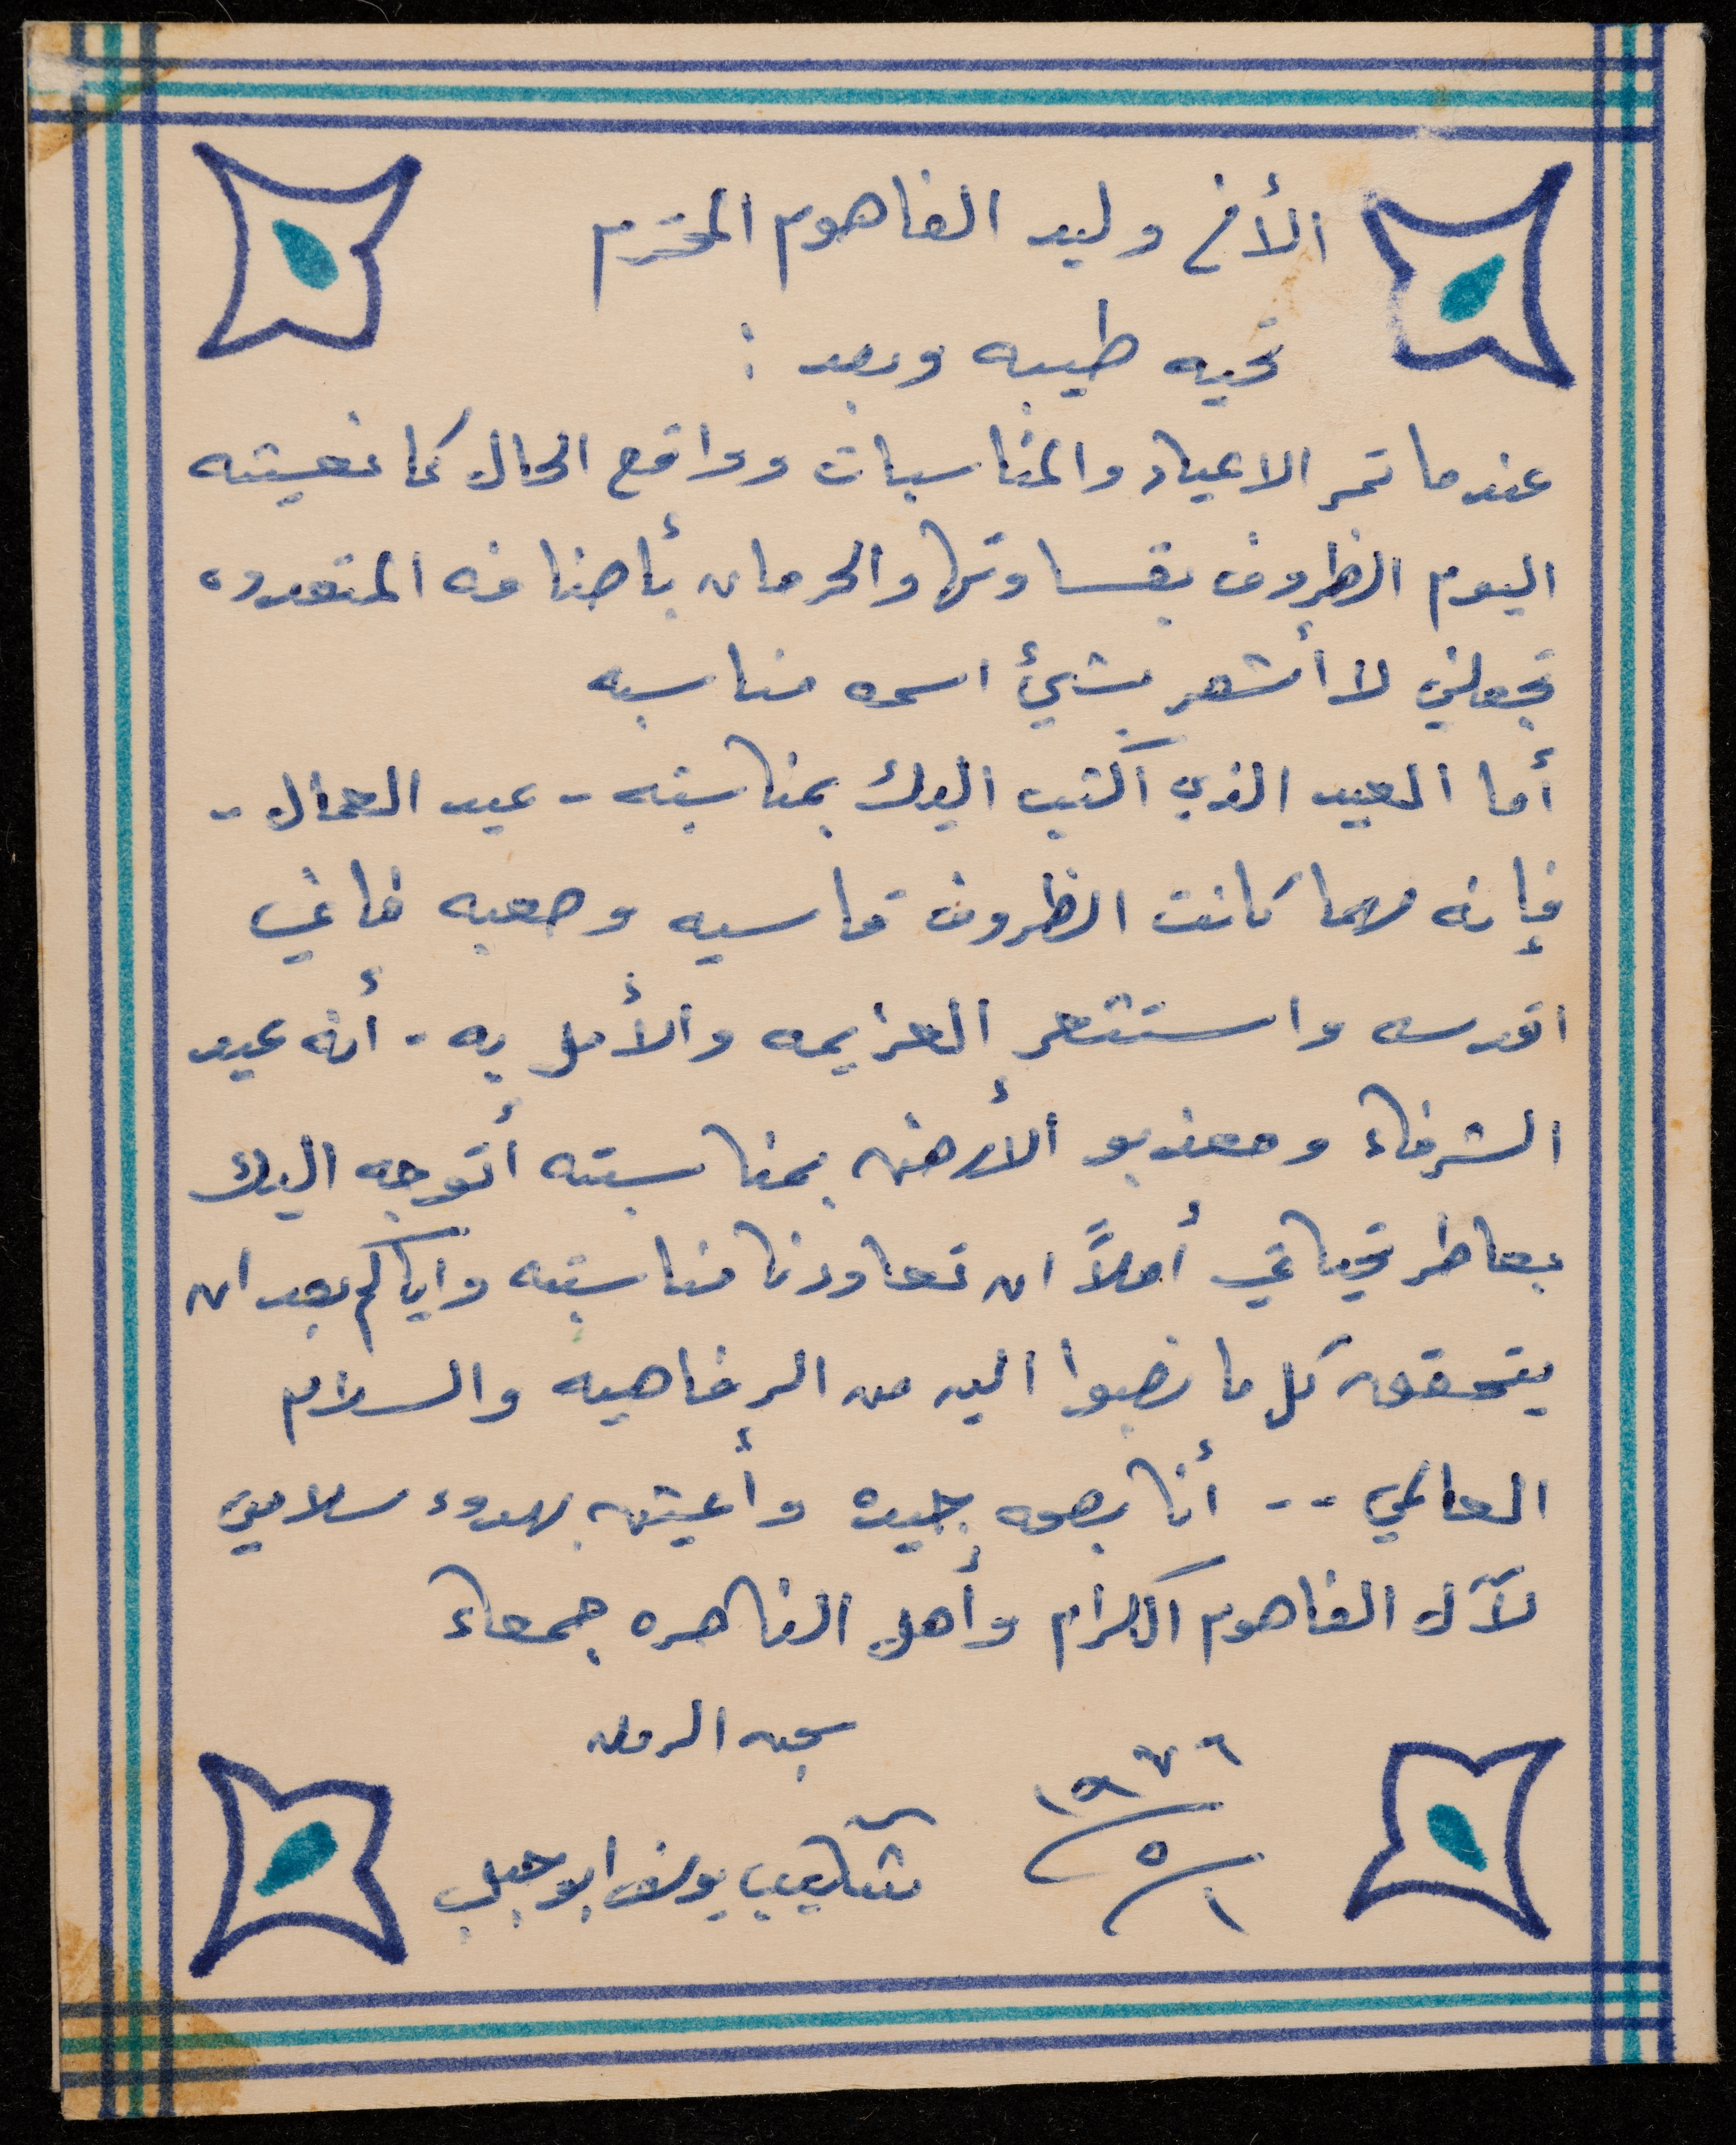 الأخ وليد الفاهوم المحترم
تحيه طيبه وبعد :
عندما تمر الاعياد والمناسبات وواقع الحال كما نعيشه
اليوم الظروف بقساوتها والحرمان بأصنافه المتعدده
تجعلني لا أشعر بشيئ اسمه مناسبه
أما العيد الذي اكتب اليك بمناسبته - عيد العمال -
فإنه مهما كانت الظروف قاسيه وصعبه فاني
اقدسه واستشعر العزيمه والأمل به - أنه عيد
الشرفاء ومعذبو الأرض بمناسبته أتوجه اليك
بعاطر تحياتي أملاً ان تعاودنا مناسبته واياكم بعد ان
يتحقق كل ما نصبوا اليه من الرفاهيه والسلام
العالمي -- أنا بصحه جيده وأعيش بهدوء سلامي
لآل الفاهوم الكرام وأهل الناصره جمعاء
سجن الرمله
١٩٧٦/٥/١
شكيب يوسف ابو جبل